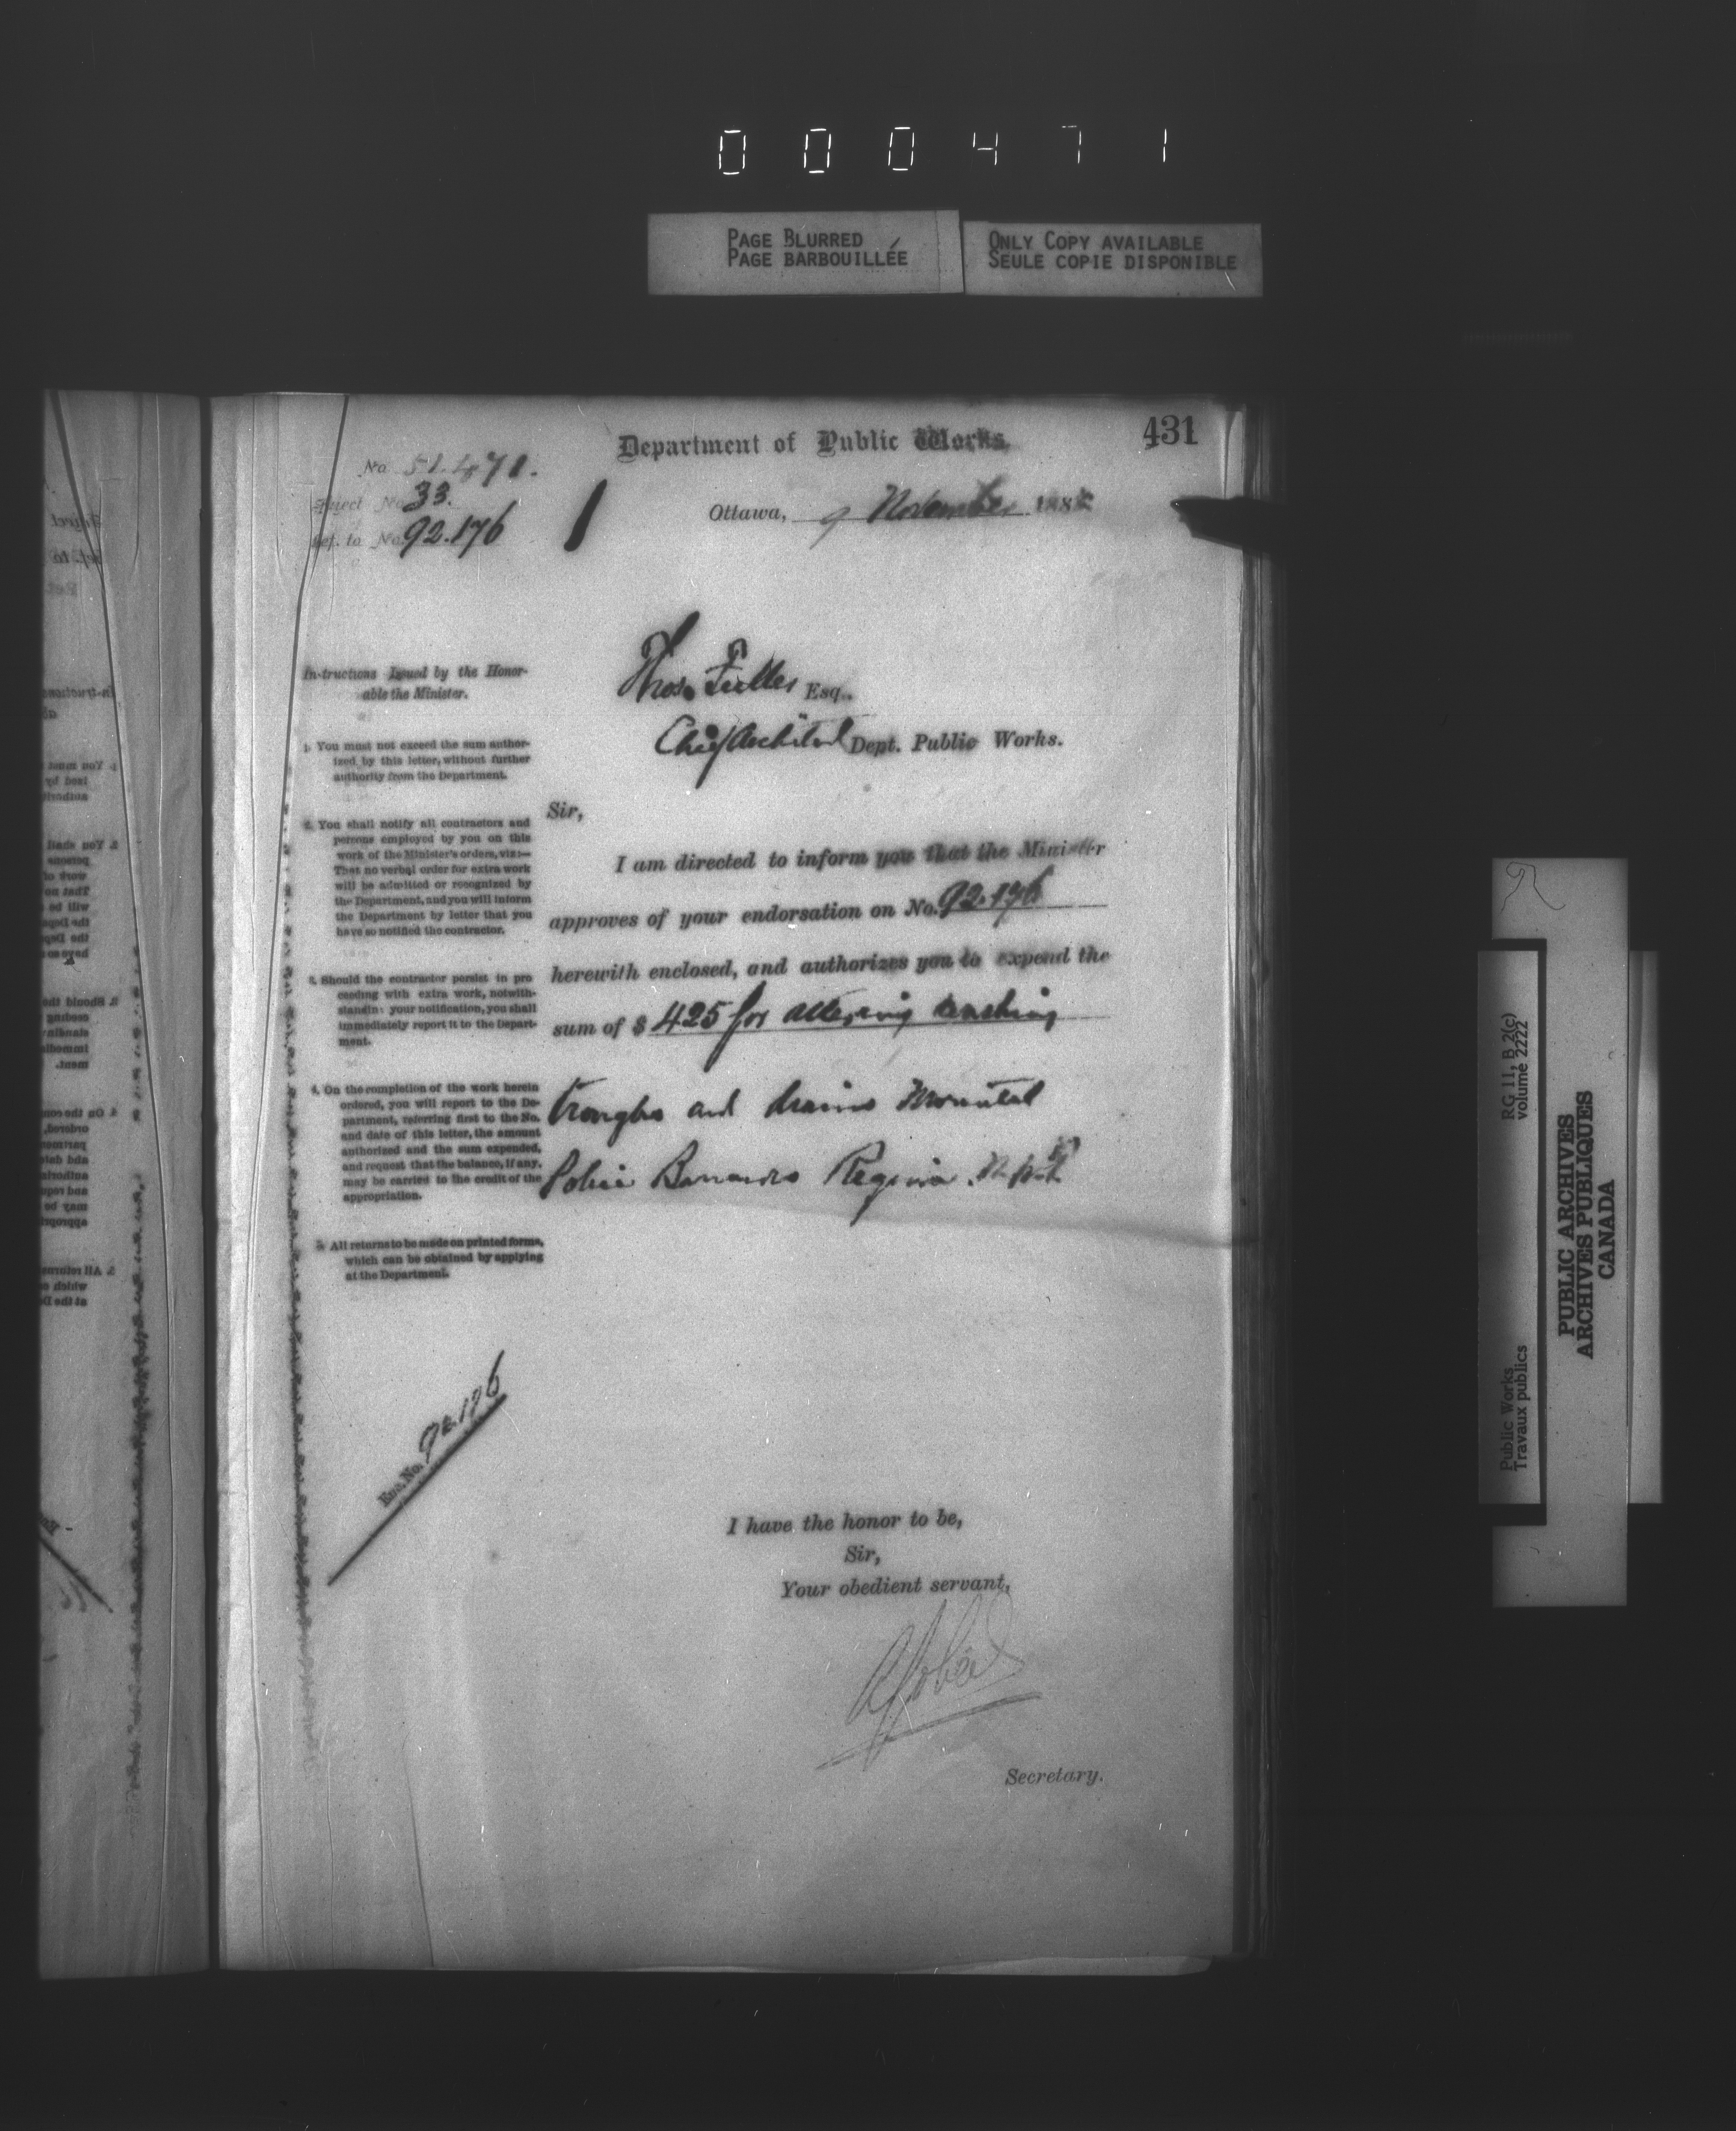 000471
PAGE BLURRED
PAGE BARBOUILLÉE
ONLY COPY AVAILABLE
SEULE COPIE DISPONIBLE
431
Department of Public Works.
No 51.471.
Subject No 33.
Ref. to No. 92.176
Ottawa, 9 November 188
Thos. Fuller Esq.
Chief Architect Dept. Public Works.
Instructions Issued by the Honor-
able the Minister.
1. You must not exceed the sum author-
ized by this letter, without further
authority from the Department.
2. You shall notify all contractors and
persons employed by you on this
work of the Minister's orders, viz:—
That no verbal order for extra work
will be admitted or recognized by
the Department, and you will inform
the Department by letter that you
have so notified the contractor.
3. Should the contractor persist in pro
ceeding with extra work, notwith-
standing your notification, you shall
immediately report it to the Depart-
ment.
4. On the completion of the work herein
ordered, you will report to the De-
partment, referring first to the No.
and date of this letter, the amount
authorized and the sum expended,
and request that the balance, if any,
may be carried to the credit of the
appropriation.
5. All returns to be made on printed forms,
which can be obtained by applying
at the Department.
Sir,
I am directed to inform you that the Minister
approves of your endorsation on No. 92.176
herewith enclosed, and authorizes you to expend the
sum of $ 425 for altering washing
troughs and drains Mounted
Police Barracks Regina. N.W.T.
Enc. No. 92.176
I have the honor to be,
Sir,
Your obedient servant,
Secretary.
RG 11, B 2(c)
volume 2222
Public Works
Travaux publics
PUBLIC ARCHIVES
ARCHIVES PUBLIQUES
CANADA